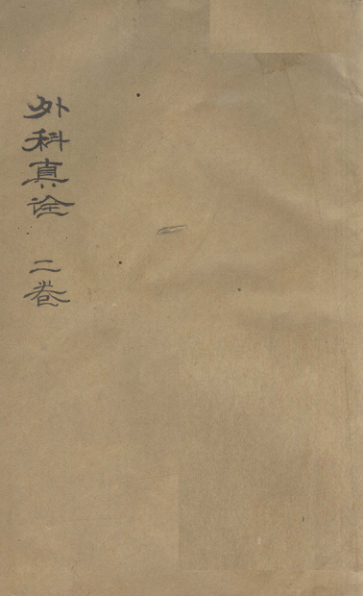 外科真诠 二卷